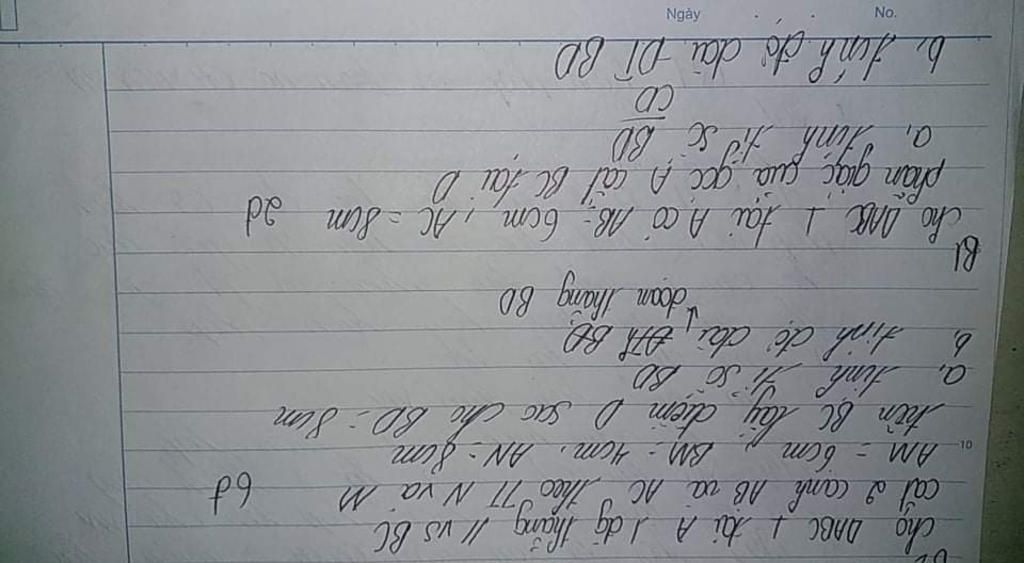 Cho ΔABC ⊥ tại A 1 đg thẳng // vs BC
cắt 2 cạnh AB và AC theo TT N và M 6đ
10
AM = 6cm ; BM = 4cm. AN = 8cm
trên BC lấy điểm D sao cho BD = 8cm
a, tính tỉ số BD
b, tính độ dài BD
đoạn thẳng BD
B1
Cho ΔABC ⊥ tại A có AB = 6cm, AC = 8cm 2đ
phân giác của góc A cắt BC tại D
a, tính tỉ số BD
CD
b, tính độ dài ĐT BD
Ngày . . . No.